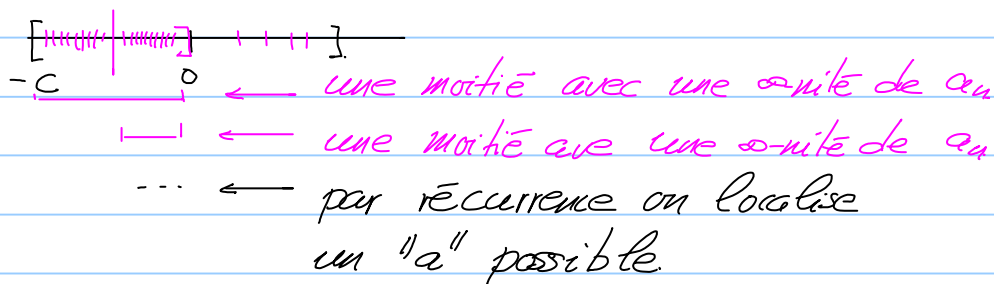 -C 0
une moitié avec une ∞-nité de an
une moitié ave une ∞-nité de an
--- par récurrence on localise
un "a" possible.